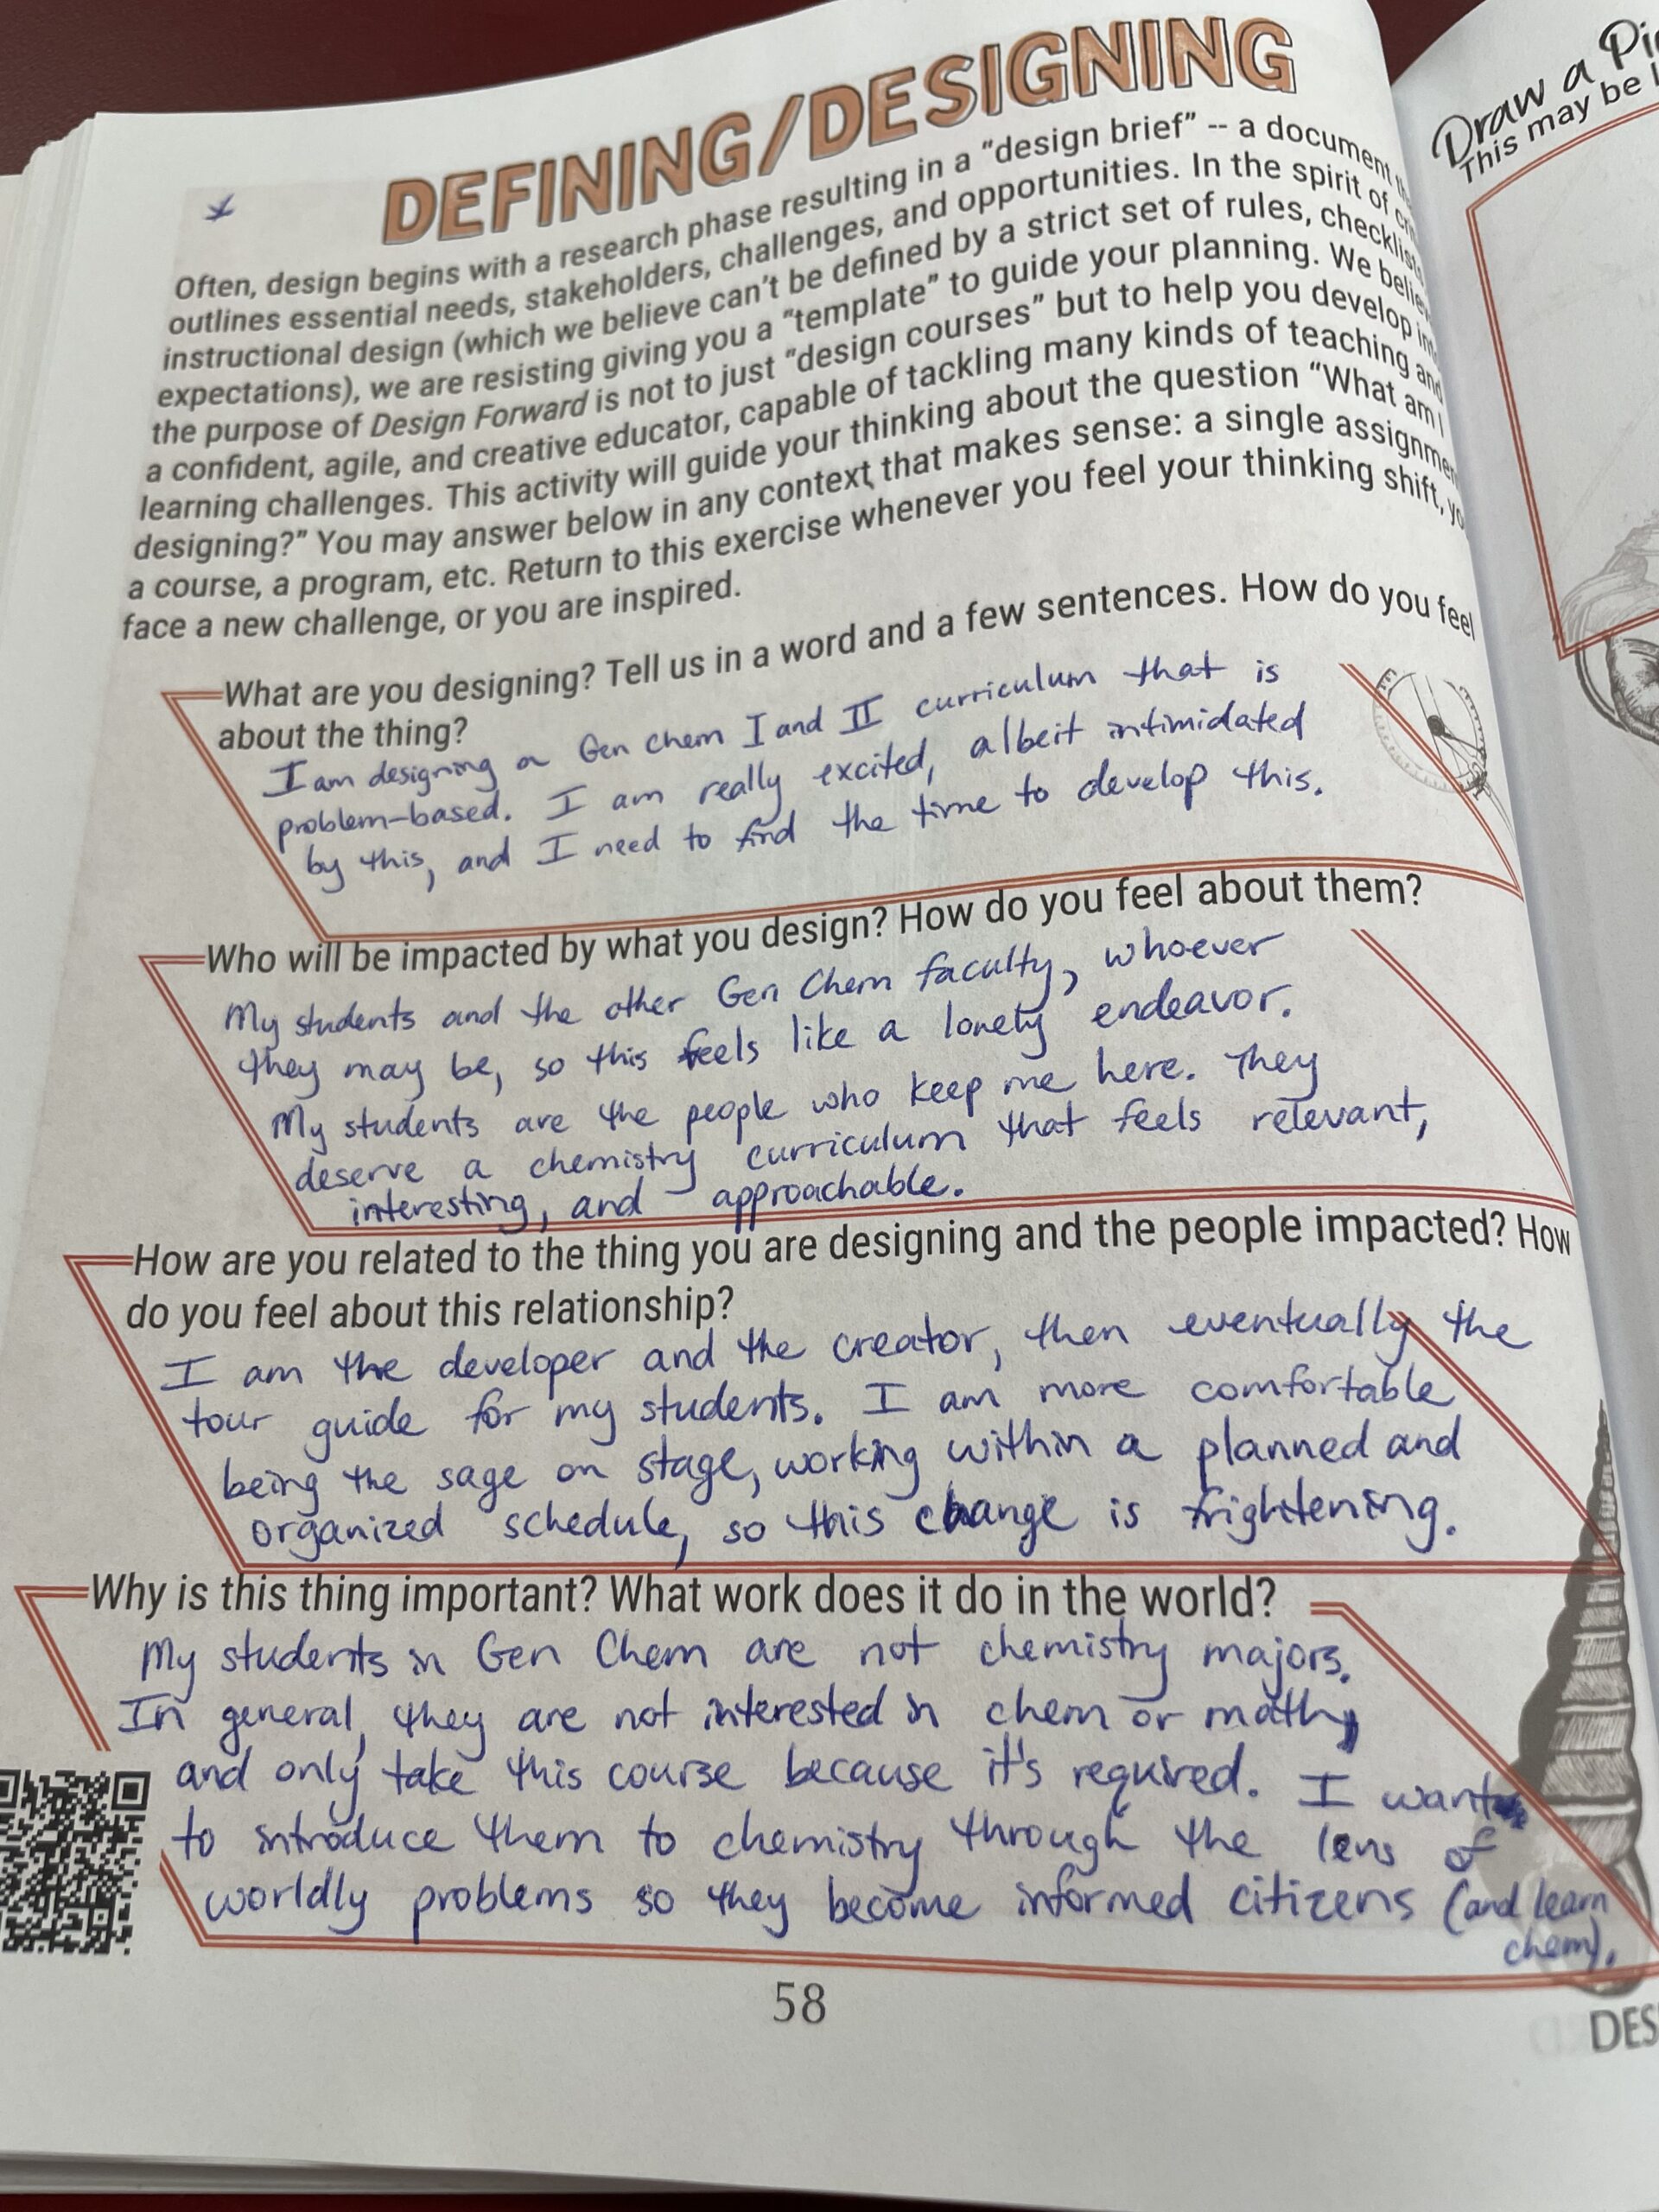 DEFINING/DESIGNING
Often, design begins with a research phase resulting in a “design brief” -- a document
outlines essential needs, stakeholders, challenges, and opportunities. In the spirit of
instructional design (which we believe can’t be defined by a strict set of rules, checklists,
expectations), we are resisting giving you a “template” to guide your planning. We believe
the purpose of Design Forward is not to just “design courses” but to help you develop
a confident, agile, and creative educator, capable of tackling many kinds of teaching and
learning challenges. This activity will guide your thinking about the question “What am I
designing?” You may answer below in any context that makes sense: a single
a course, a program, etc. Return to this exercise whenever you feel your thinking shift,
face a new challenge, or you are inspired.
What are you designing? Tell us in a word and a few sentences. How do you feel
about the thing?
I am designing a Gen Chem I and II curriculum that is
problem-based. I am really excited, albeit intimidated
by this, and I need to find the time to develop this.
Who will be impacted by what you design? How do you feel about them?
My students and the other Gen Chem faculty, whoever
they may be, so this feels like a lonely endeavor.
My students are the people who keep me here. They
deserve a chemistry curriculum that feels relevant,
interesting, and approachable.
How are you related to the thing you are designing and the people impacted? How
do you feel about this relationship?
I am the developer and the creator, then eventually the
tour guide for my students. I am more comfortable
being the sage on stage, working within a planned and
organized schedule, so this change is frightening.
Why is this thing important? What work does it do in the world?
My students in Gen Chem are not chemistry majors.
In general, they are not interested in chem or math,
and only take this course because it's required. I want
to introduce them to chemistry through the lens of
worldly problems so they become informed citizens (and learn
chem).
58
Draw a
This may be
DES